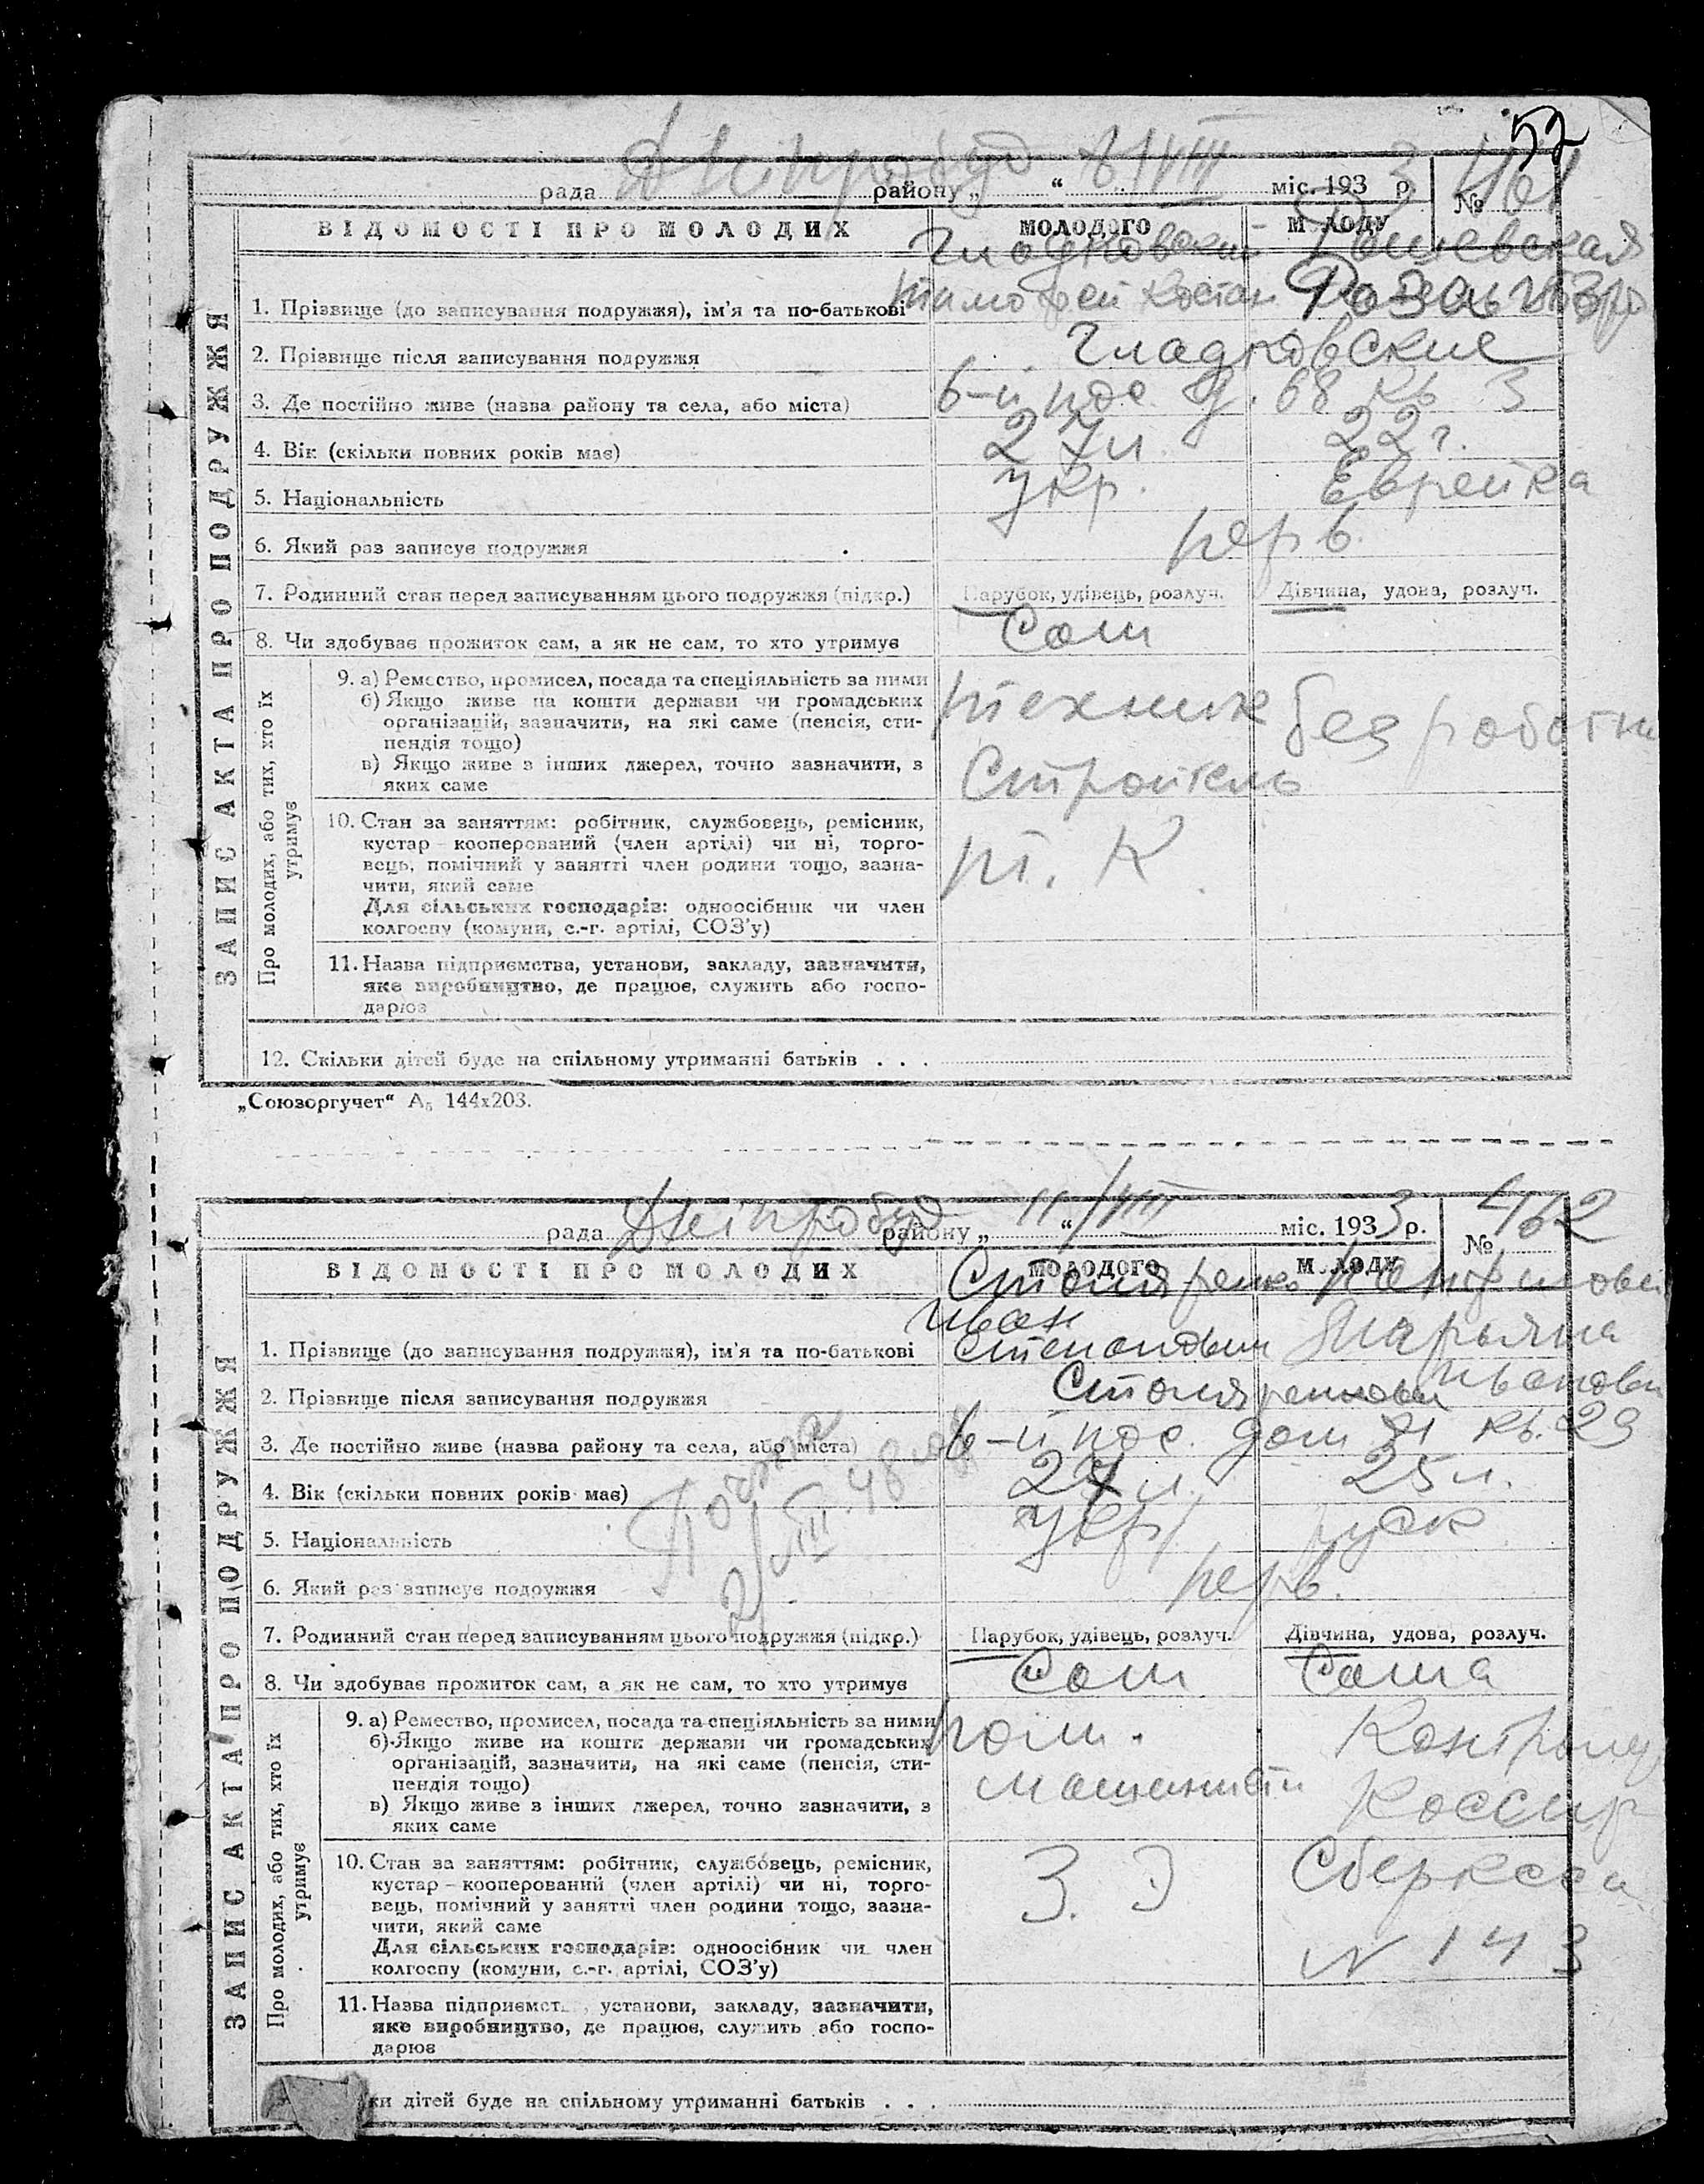 52
рада Дніпробуд району „ “ 8/VIII міс. 193 3 р. № 461
ВІДОМОСТІ ПРО МОЛОДИХ МОЛОДОГО МОЛОДУ
Гладковский
1. Прізвище (до записування подружжя), ім'я та по-батькові Тимофей Роза
2. Прізвище після записування подружжя Гладковские
3. Де постійно живе (назва району та села, або міста) 6-й пос. д. 68 кв 3
4. Вік (скільки повних років має) 27 л. 22 г.
5. Національність Укр. Еврейка
6. Який раз записує подружжя перв.
7. Родинний стан перед записуванням цього подружжя (підкр.) Парубок, удівець, розлуч. Дівчина, удова, розлуч.
8. Чи здобуває прожиток сам, а як не сам, то хто утримує Сам
ЗАПИС АКТА ПРО ПОДРУЖЖЯ
Про молодих, або тих, хто їх утримує
9. а) Ремество, промисел, посада та спеціяльність за ними техник
б) Якщо живе на кошти держави чи громадських без работы
організацій, зазначити, на які саме (пенсія, сти-
пендія тощо)
в) Якщо живе з інших джерел, точно зазначити, з Строитель
яких саме
10. Стан за заняттям: робітник, службовець, ремісник,
кустар – кооперований (член артілі) чи ні, торго-
вець, помічний у занятті член родини тощо, зазна- т. К.
чити, який саме
Для сільських господарів: одноосібник чи член
колгоспу (комуни, с.-г. артілі, СОЗ'у)
11. Назва підприємства, установи, закладу, зазначити,
яке виробництво, де працює, служить або госпо-
дарює
12. Скільки дітей буде на спільному утриманні батьків . . .
„Союзоргучет“ А₅ 144х203.
рада Дніпробуд району „ “ 11/VIII міс. 193 3 р. № 462
ВІДОМОСТІ ПРО МОЛОДИХ МОЛОДОГО МОЛОДУ
Столяренко
Иван
1. Прізвище (до записування подружжя), ім'я та по-батькові Степанович Марьяна
Иванови
2. Прізвище після записування подружжя Столяренкови
3. Де постійно живе (назва району та села, або міста) 6-й пос. дом 21 кв. 29
4. Вік (скільки повних років має) 27 л. 25 л.
5. Національність Укр. руск
6. Який раз записує подружжя перв.
7. Родинний стан перед записуванням цього подружжя (підкр.) Парубок, удівець, розлуч. Дівчина, удова, розлуч.
8. Чи здобуває прожиток сам, а як не сам, то хто утримує Сам Сама
ЗАПИС АКТА ПРО ПОДРУЖЖЯ
Про молодих, або тих, хто їх утримує
9. а) Ремество, промисел, посада та спеціяльність за ними пом.
б) Якщо живе на кошти держави чи громадських
організацій, зазначити, на які саме (пенсія, сти-
пендія тощо) машинист
в) Якщо живе з інших джерел, точно зазначити, з Кассир
яких саме
10. Стан за заняттям: робітник, службовець, ремісник, З. Э
кустар – кооперований (член артілі) чи ні, торго-
вець, помічний у занятті член родини тощо, зазна-
чити, який саме
Для сільських господарів: одноосібник чи член N 143
колгоспу (комуни, с.-г. артілі, СОЗ'у)
11. Назва підприємст , установи, закладу, зазначити,
яке виробництво, де працює, служить або госпо-
дарює
ки дітей буде на спільному утриманні батьків . . .